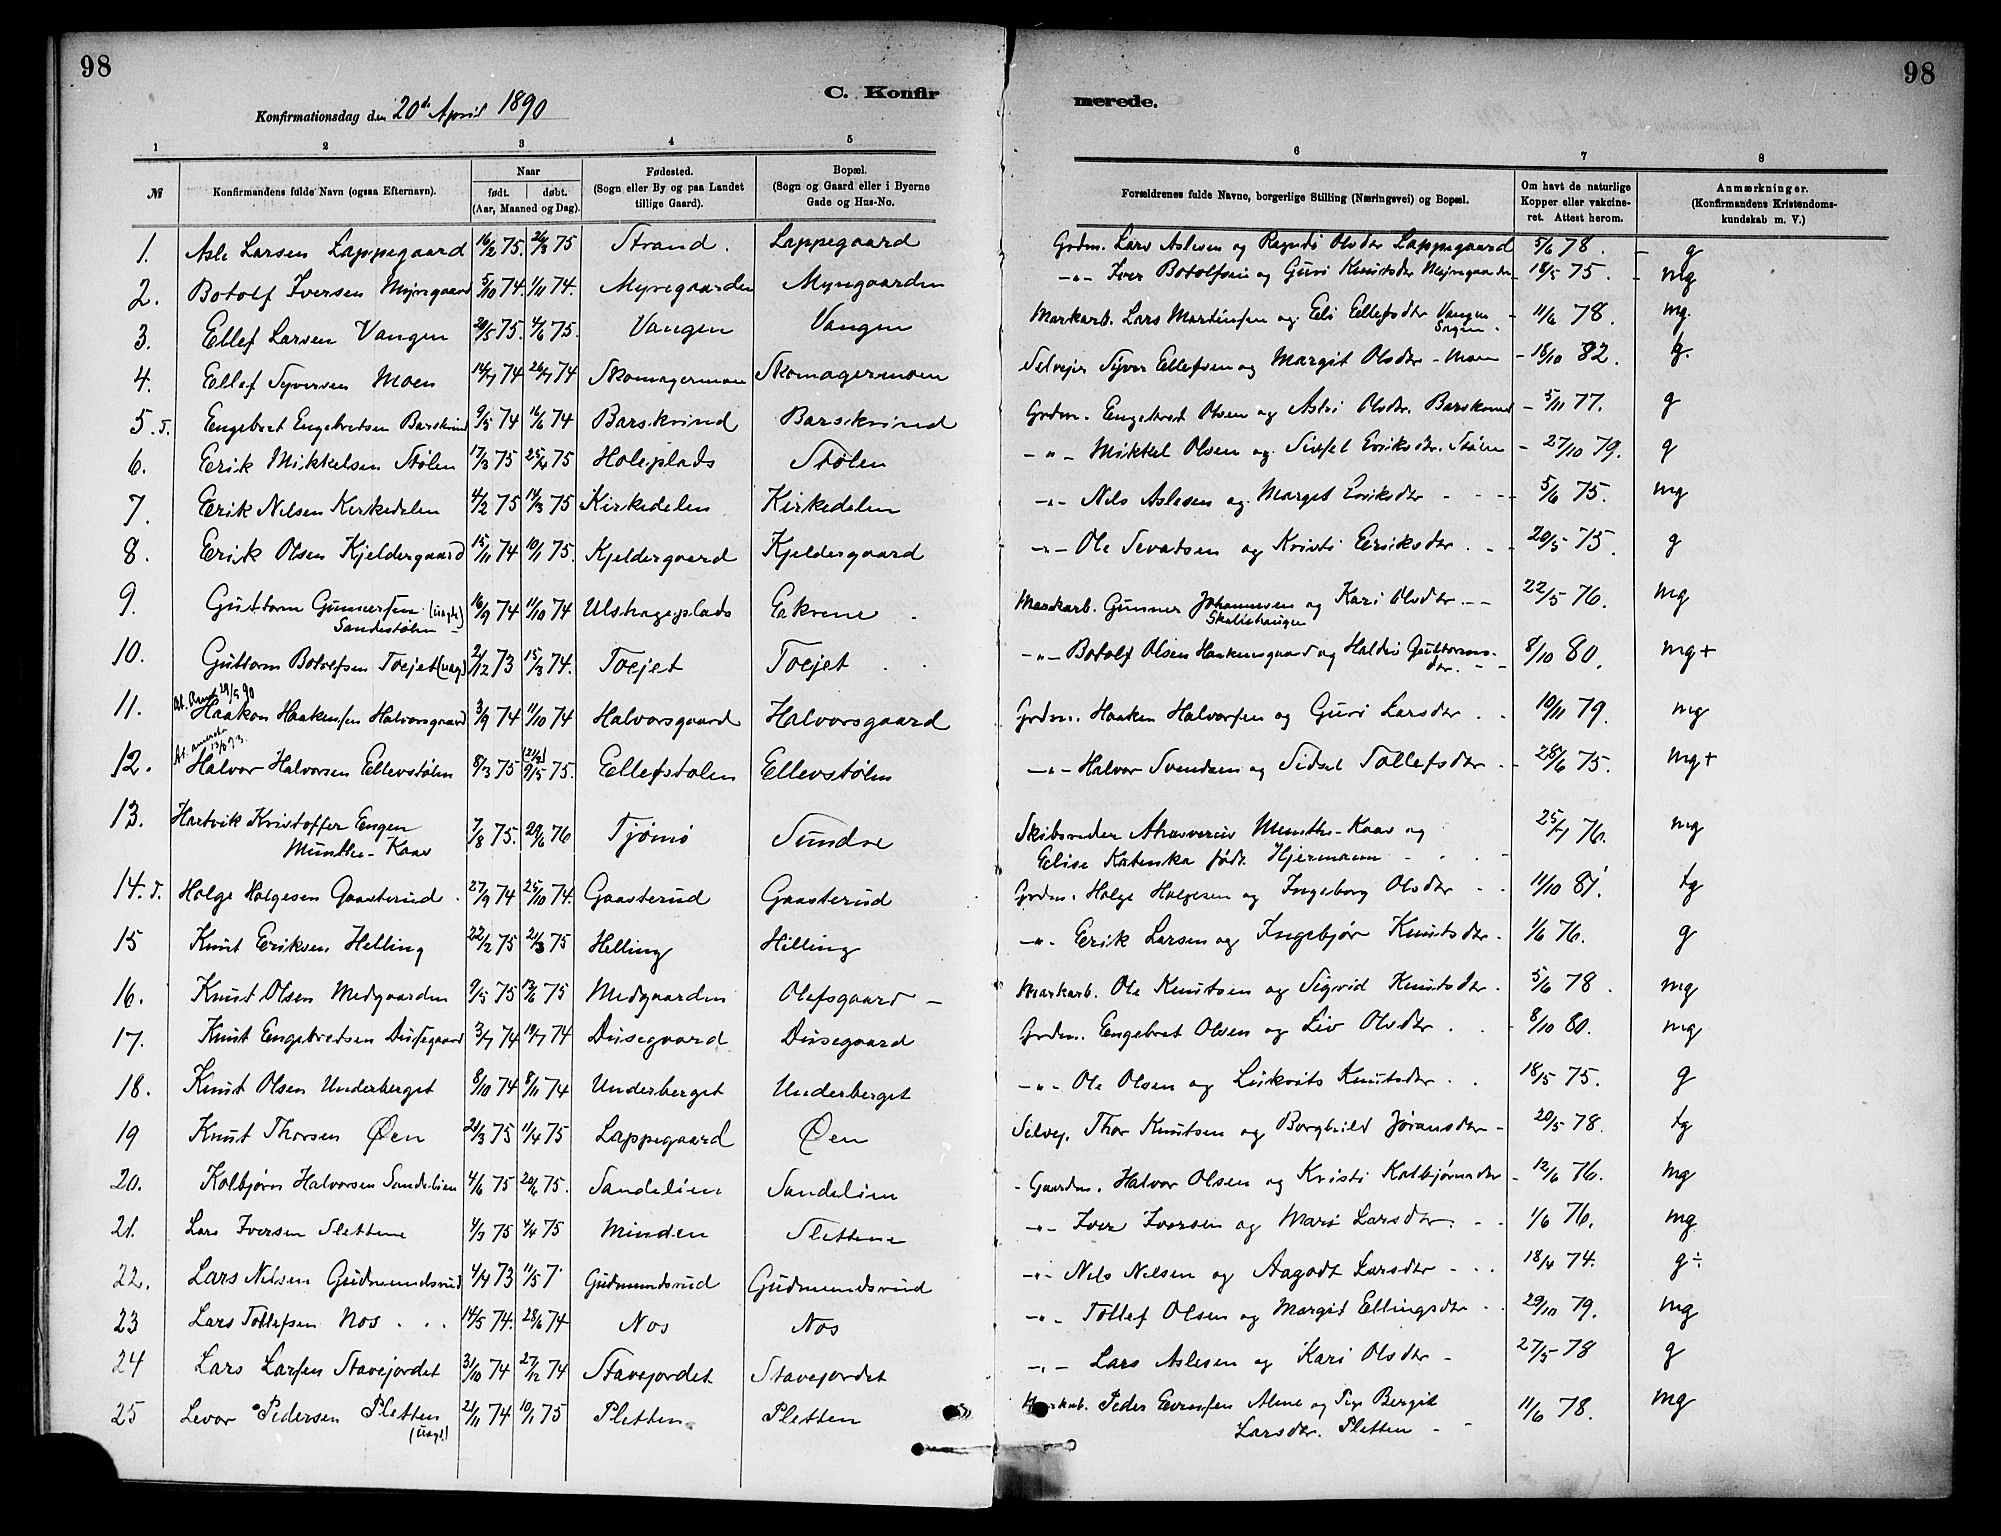 98
98
C. Konfir
merede.
Konfirmationsdag den 20de April 1890
1 2 3 4 5 6 7 8
№ Konfirmandens fulde Navn (ogsaa Efternavn). Naar født. døbt. (Aar, Maaned og Dag). Fødested. (Sogn eller By og paa Landet tillige Gaard). Bopæl. (Sogn og Gaard eller i Byerne Gade og Hus-No. Forældrenes fulde Navne, borgerlige Stilling (Næringsvei) og Bopæl. Om havt de naturlige Kopper eller vakcineret. Attest herom. Anmærkninger. (Konfirmandens Kristendomskundskab m. V.)
1. Asle Larsen Lappegaard 16/2 75. 21/3 75 Strand. Lappegaard Grdm. Lars Aslesen og Ragndi Olsdtr Lappegaard 5/6 78. - g
2. Botolf Iversen Myregaard 5/10 74. 1/11 74. Myregaarden Myregaarden -"- Iver Botolfsen og Guri Knutsdtr Myregaarden - 18/5 75. - mg
3. Ellef Larsen Vangen 20/5 75. 4/6 75. Vangen Vangen Markarb. Lars Martinsen og Eli Ellefsdtr Vangen - 11/6 78. mg.
4. Ellef Syversen Moen 14/7 74 26/7 74 Skomagermoen Skomagermoen Selvejer Syver Ellefsen og Margit Olsdtr - Moen - 18/10 82. g.
5. T. Engebret Engebretsen Barskrind 9/5 74 16/6 74 Barskrind Barskrind Grdm. Engebret Olsen og Astri Olsdtr. Barskrind - 5/11 77. g
6. Erik Mikkelsen Stølen 17/3 75 25/4 75 Holeplads Stølen -"- Mikkel Olsen og Sissel Eriksdtr. Stølen - 27/10 79. g
7. Erik Nelsen Kirkedelen 4/2 75 14/3 75 Kirkedelen Kirkedelen -"- Nels Aslesen og Margit Eriksdtr - - - 5/6 75. mg
8. Erik Olsen Kjeldergaard 15/11 74 10/1 75. Kjeldergaard Kjeldergaard -"- Ole Sevatsen og Kristi Eriksdtr. - - 20/5 75. g
9. Guttorm Gunnersen (uægte) 16/9 74 11/10 74 Ulshageplads Eekrene . Markarb. Gunner Johannesen og Kari Olsdtr - - 22/5 76. mg
Sandestølen - Skalishaugen
10. Guttorm Botolfsen Toejet (uæg) 2/12 73 15/3 74. Toejet Toejet . . -"- Botolf Olsen Haakensgaard og Haldis Guttormsdtr. - - 8/10 80. mg+
At. Amer 29/5 90
11. Haakon Haakensen Halvorsgaard 3/9 74 11/10 74 Halvorsgaard Halvorsgaard Grdm. Haaken Halvorsen og Guri Larsdtr . . 10/11 79. mg
At. amerika 13/3 93.
12. Halvor Halvorsen Ellevstølen 8/3 75 (21/3) 9/5 75. Ellefstolen Ellevstølen -"- Halvor Svendsen og Sidsel Tollefsdtr - - 28/6 75. mg+
13. Hartvik Kristoffer Engen 7/8 75. 29/6 76 Tjømø Sundre Skibsreder Ahasverius Munthe-Kaas og 25/7 76. mg
Munthe-Kaas Elise Katinka født Hjermann - . . -
14. T. Holge Holgesen Gaasterud . 27/9 74 25/10 74. Gaasterud Gaasterud Grdm. Holge Holgesen og Ingeborg Olsdtr . . 11/10 87. tg
15 Knut Eriksen Helling 22/2 75 21/3 75 Helling Hilling -"- Erik Larsen og Ingebjør Knutsdtr - 1/6 76. g
16. Knut Olsen Medgaarden 9/5 75 13/6 75 Medgaarden Olefsgaard - Markarb. Ole Knutsen og Sigrid Knutsdtr . 5/6 78 . mg
17. Knut Engebretsen Dusegaard 3/7 74 19/7 74 Dusegaard Dusegaard Grdm. Engebret Olsen og Liv Olsdtr . . - 8/10 80. mg
18. Knut Olsen Underberget 8/10 74 8/11 74 Underberget Underberget -"- Ole Olsen og Liskvits Knutsdtr . . 18/5 75. g
19 Knut Thorsen Øen 21/3 75 11/4 75 Lappegaard Øen Selvej. Thor Knutsen og Borghild Jøransdtr - 20/5 78. tg
20. Kolbjørn Halvorsen Sandelien 4/6 75 20/6 75. Sandelien Sandelien - Gaardm. Halvor Olsen og Kristi Kolbjørnsdtr - 12/6 76. mg
21. Lars Iversen Slettene 4/3 75 4/4 75 Minden Slettene -"- Iver Iversen og Mari Larsdtr. - - 1/6 76. mg
22. Lars Nelsen Gudmundsrud 4/4 73 11/5 7' Gudmundsrud Gudmundsrud -"- Nels Nelsen og Aagodt Larsdtr - - - 18/4 74. g÷
23 Lars Tollefsen Nos . . . 14/5 74. 28/6 74 Nos Nos -"- Tollef Olsen og Margit Ellingsdtr . . 29/10 79. mg
24 Lars Larsen Stavejordet 31/10 74 27/12 74 Stavejordet Stavejordet -"- Lars Aslesen og Kari Olsdtr - 27/5 78 g
25 Levor Pedersen Pletten 21/11 74 10/1 75 Pletten Pletten Markarb. Peder Evensen Alme og Pige Bergit 11/6 78. mg
(uægte) Larsdtr. Pletten -